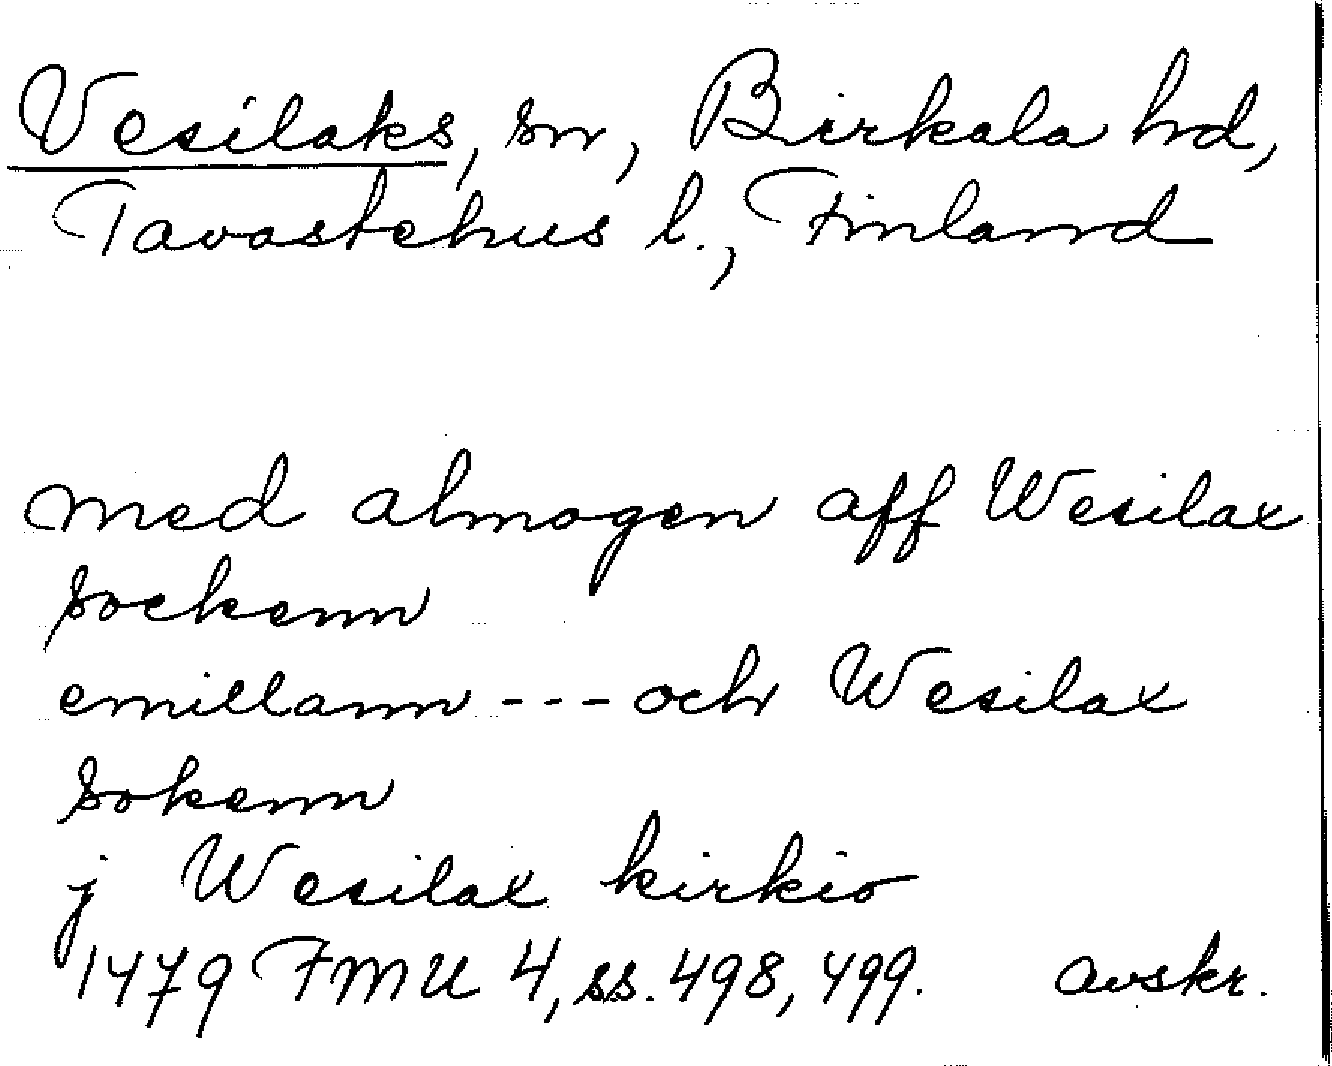 Vesilaks, sn, Birkala hd,
Tavastehus l., Finland
med almogen aff Wesilax
sockenn
emillann --- och Wesilax
sokenn
j Wesilax kirkio
1479 FMU 4, ss. 498, 499. avskr.